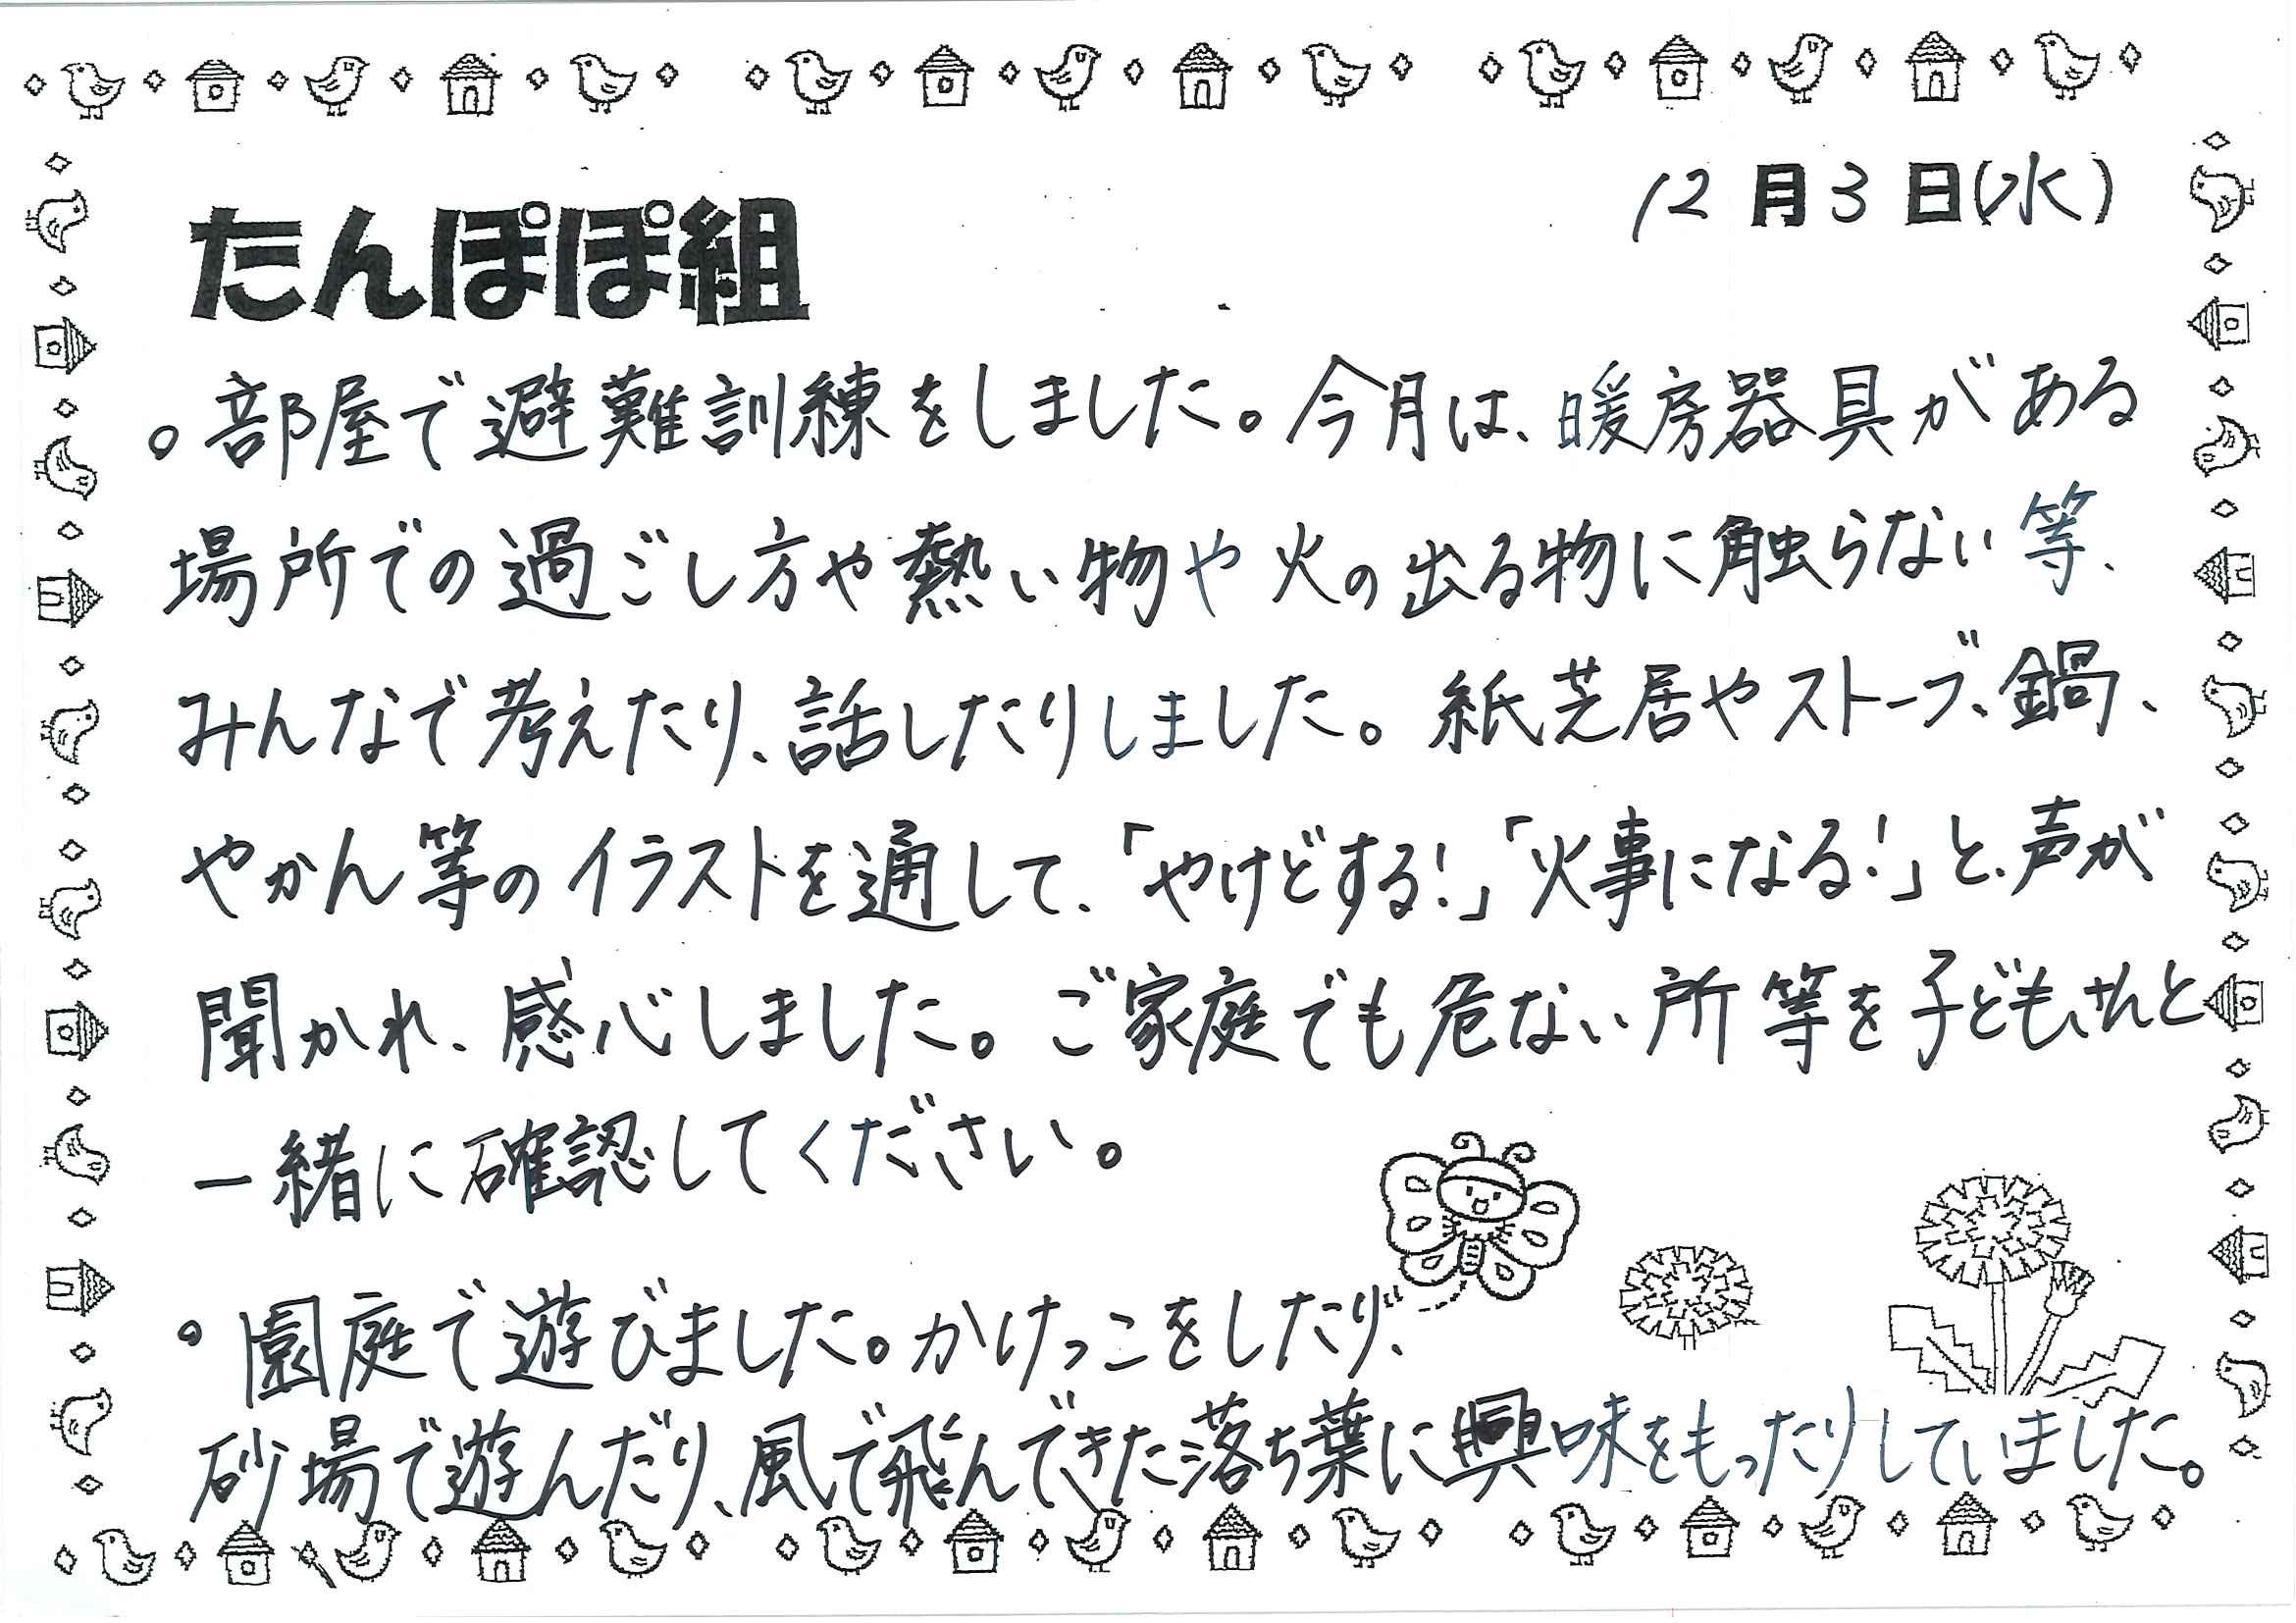 12月3日(水)
たんぽぽ組
○部屋で避難訓練をしました。今月は、暖房器具がある
場所での過ごし方や熱い物や火の出る物に触らない等、
みんなで考えたり、話したりしました。紙芝居やストーブ、鍋、
やかん等のイラストを通して、「やけどする!」「火事になる!」と、声が
聞かれ、感心しました。ご家庭でも危ない所等を子どもさんと
一緒に確認してください。
○園庭で遊びました。かけっこをしたり、
砂場で遊んだり、風で飛んできた落ち葉に興味をもったりしていました。